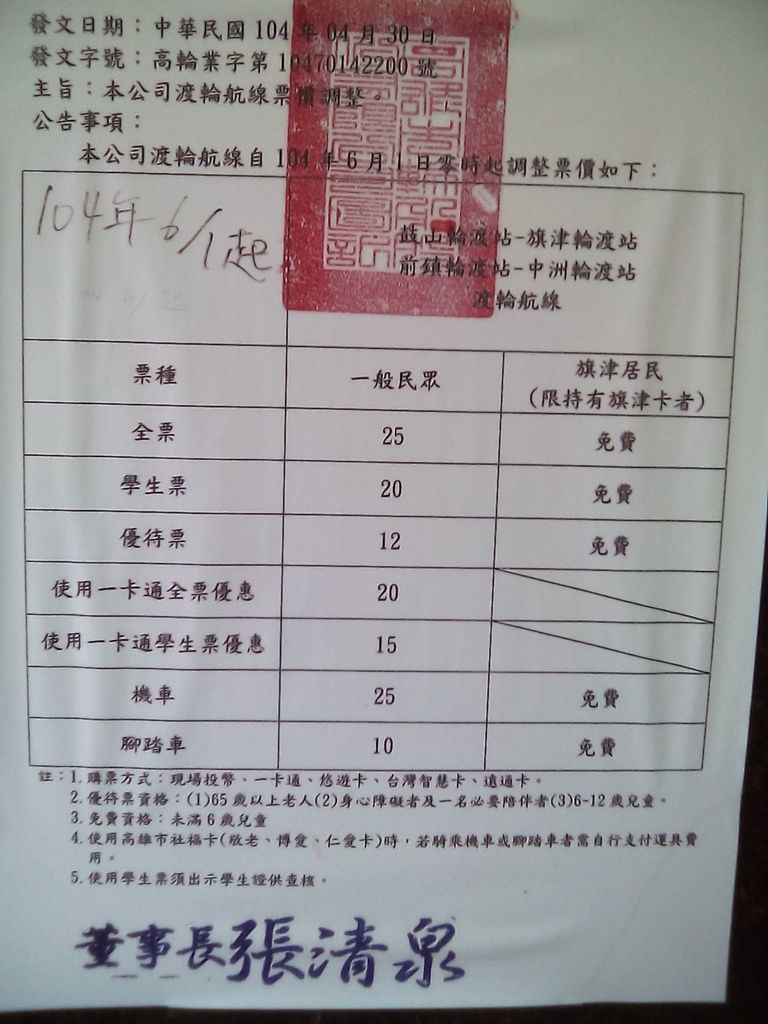 發文日期：中華民國 104 年 04 月 30 日
發文字號：高輪業字第 10470142200 號
主旨：本公司渡輪航線票價調整。
公告事項：
本公司渡輪航線自 104 年 6 月 1 日零時起調整票價如下：
104年 6/1起
鼓山輪渡站-旗津輪渡站
前鎮輪渡站-中洲輪渡站
渡輪航線
票種 一般民眾 旗津居民
（限持有旗津卡者）
全票 25 免費
學生票 20 免費
優待票 12 免費
使用一卡通全票優惠 20
使用一卡通學生票優惠 15
機車 25 免費
腳踏車 10 免費
註：1. 購票方式：現場投幣、一卡通、悠遊卡、台灣智慧卡、遠通卡。
2. 優待票資格：(1)65 歲以上老人(2)身心障礙者及一名必要陪伴者(3)6-12 歲兒童。
3. 免費資格：未滿 6 歲兒童
4. 使用高雄市社福卡(敬老、博愛、仁愛卡)時，若騎乘機車或腳踏車者需自行支付運具費
用。
5. 使用學生票須出示學生證供查核。
董事長張清泉